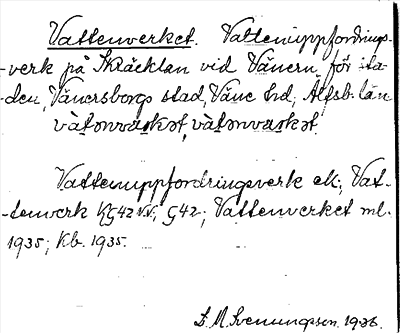 Vattenverket. Vattenuppfordrings-
-verk på Skräcklan vid Vänern för sta-
den, Vänersborgs stad, Väne hd, Älfsb. län
vàtənværkət, vàtənværkət.
Vattenuppfordringsverk ek.; Vat-
-tenverk KG42 NV, G42; Vattenverket ml.
1935; Kb. 1935.
L. M. Svenungsson. 1936.